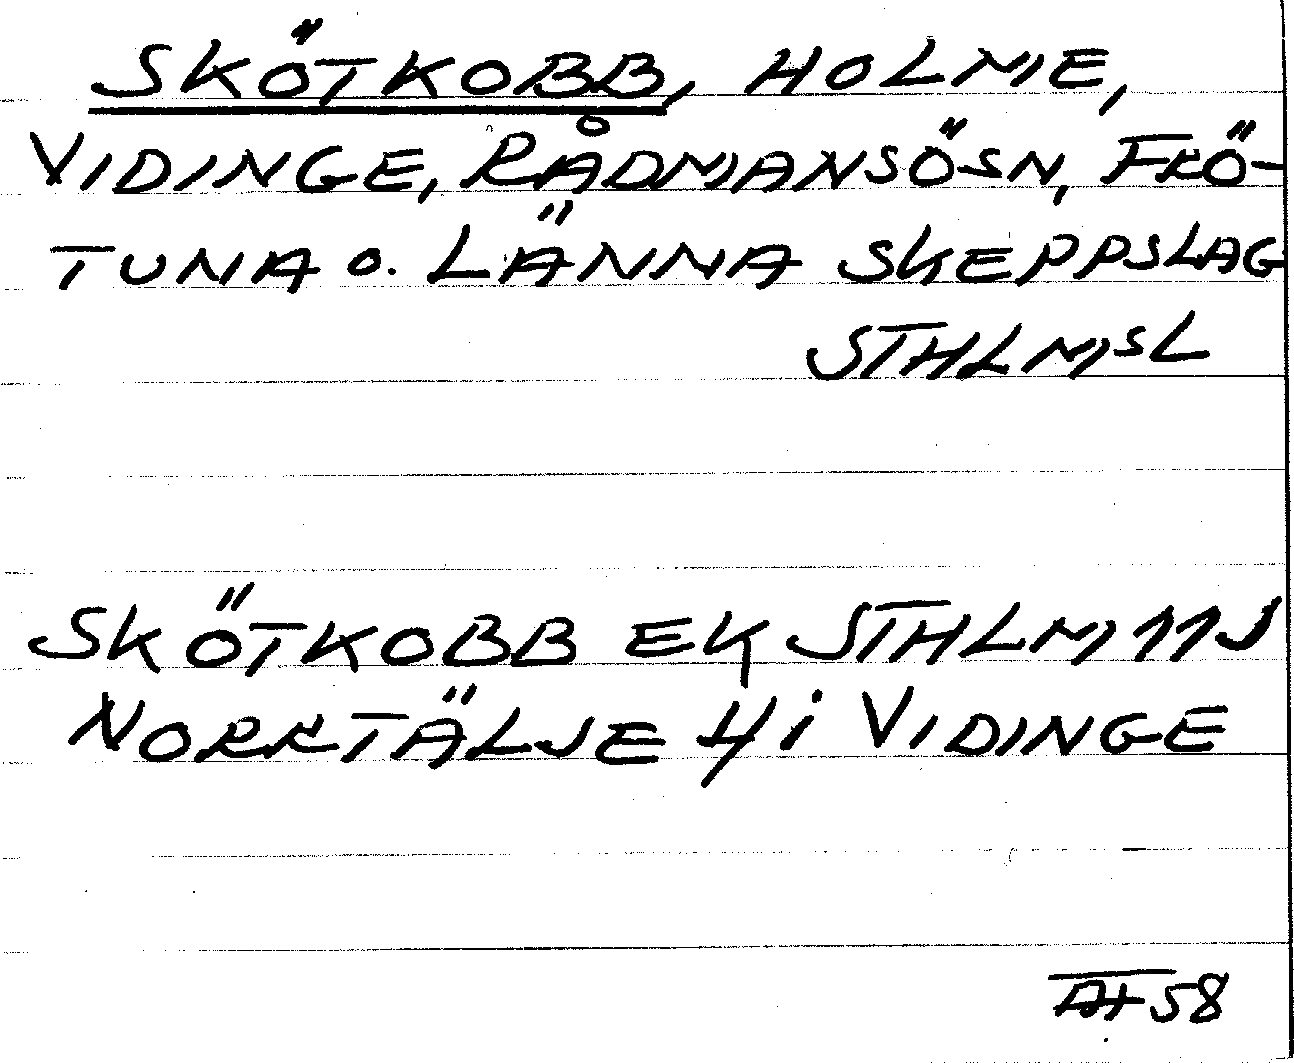 SKÖTKOBB, HOLME,
VIDINGE, RÅDMANSÖSN, FRÖ-
TUNA O. LÄNNA SKEPPSLAG
STHLMSL
SKÖTKOBB EK STHLM 11J
NORRTÄLJE 4 i VIDINGE
58